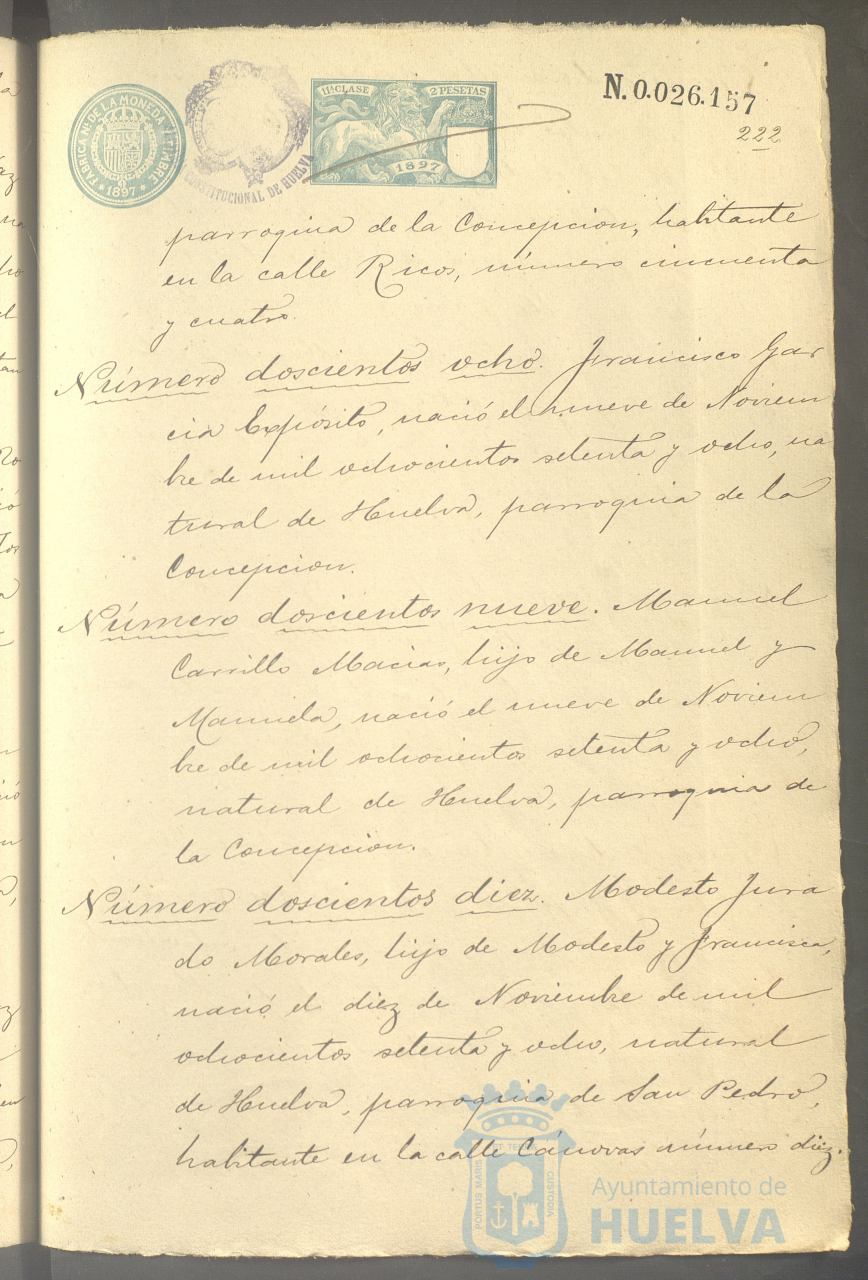 FABRICA Nᴸ DE LA MONEDA Y TIMBRE
* 1897 *
CONSTITUCIONAL DE HUELVA
11ª CLASE 2 PESETAS
1897
N.0.026.157
222
parroquia de la Concepcion, habitante
en la calle Ricos, número cincuenta
y cuatro.
Número doscientos ocho. Francisco Gar
cia Expósito, nació el nueve de Noviem
bre de mil ochocientos setenta y ocho, na
tural de Huelva, parroquia de la
Concepcion.
Número doscientos nueve. Manuel
Carrillo Macias, hijo de Manuel y
Manuela, nació el nueve de Noviem
bre de mil ochocientos setenta y ocho,
natural de Huelva, parroquia de
la Concepcion.
Número doscientos diez. Modesto Jura
do Morales, hijo de Modesto y Francisca,
nació el diez de Noviembre de mil
ochocientos setenta y ocho, natural
de Huelva, parroquia de San Pedro,
habitante en la calle Cánovas número diez.
PORTUS MARIS ET TERRÆ CUSTODIA
Ayuntamiento de
HUELVA